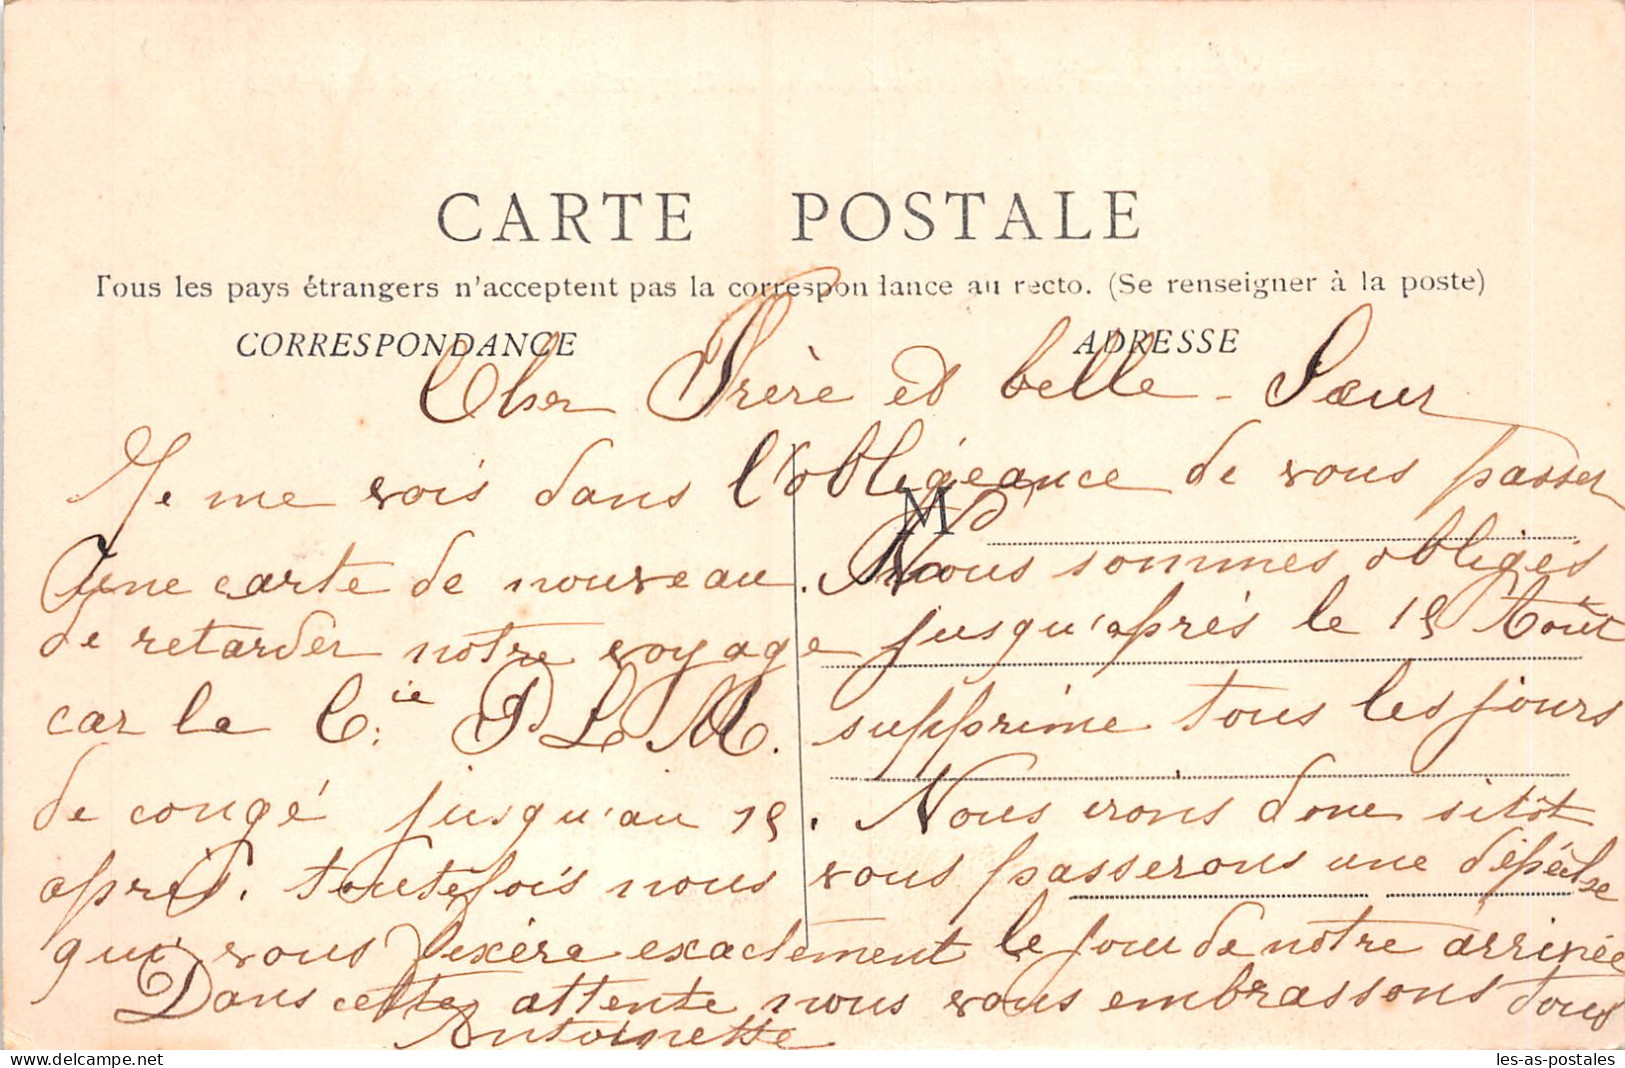 CARTE POSTALE
Tous les pays étrangers n'acceptent pas la correspondance au recto. (Se renseigner à la poste)
CORRESPONDANCE ADRESSE
Cher Frère et belle-Sœur
Je me vois dans l'obligéance de vous passer
M
Une carte de nouveau. Nous sommes obligés
de retarder notre voyage jusqu'après le 15 Août
car la Cie P L M. supprime tous les jours
de congé jusqu'au 15. Nous irons donc sitôt
après. toutefois nous vous passerons une dépêche
qui vous fixéra exactement le jour de notre arrivée
Dans cette attente nous vous embrassons tous
Antoinette
les-as-postales